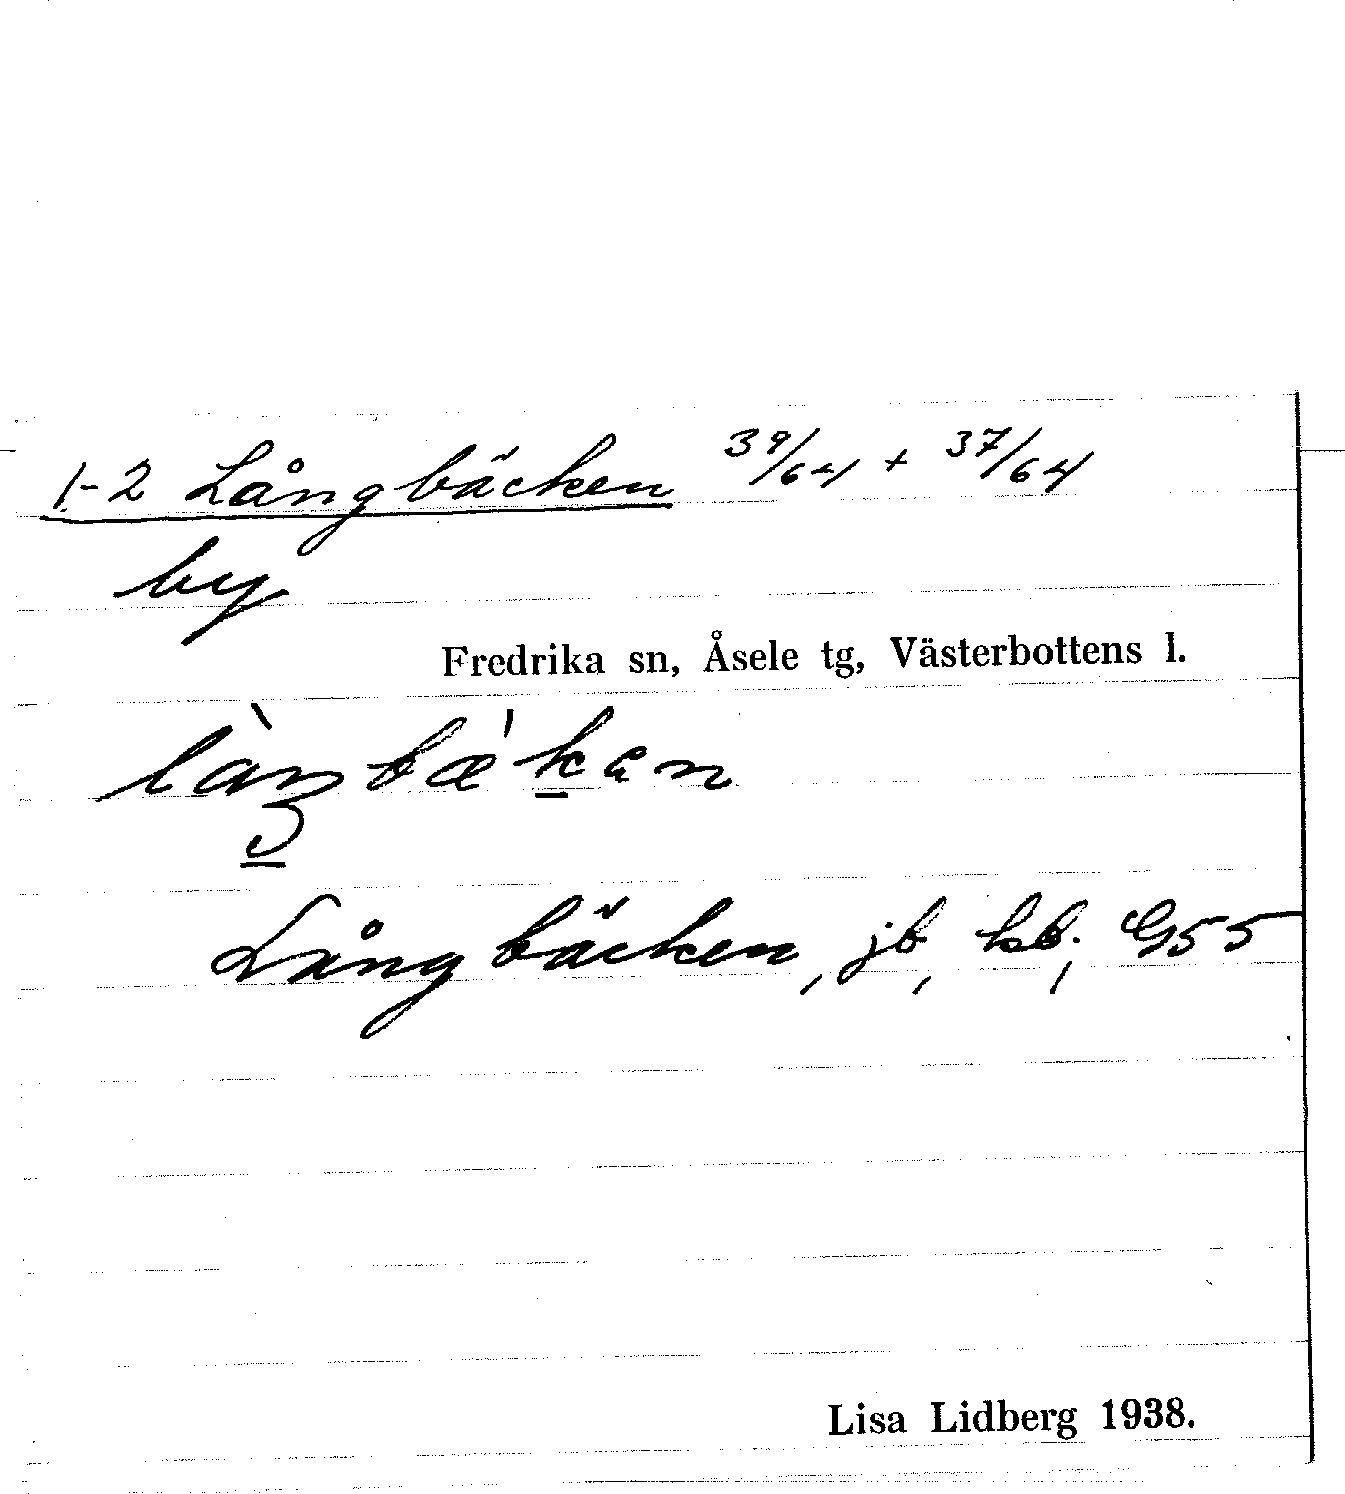 1-2 Långbäcken 39/64 + 37/64
by
Fredrika sn, Åsele tg, Västerbottens l.
Långbäcken, jb, kb, G55
Lisa Lidberg 1938.